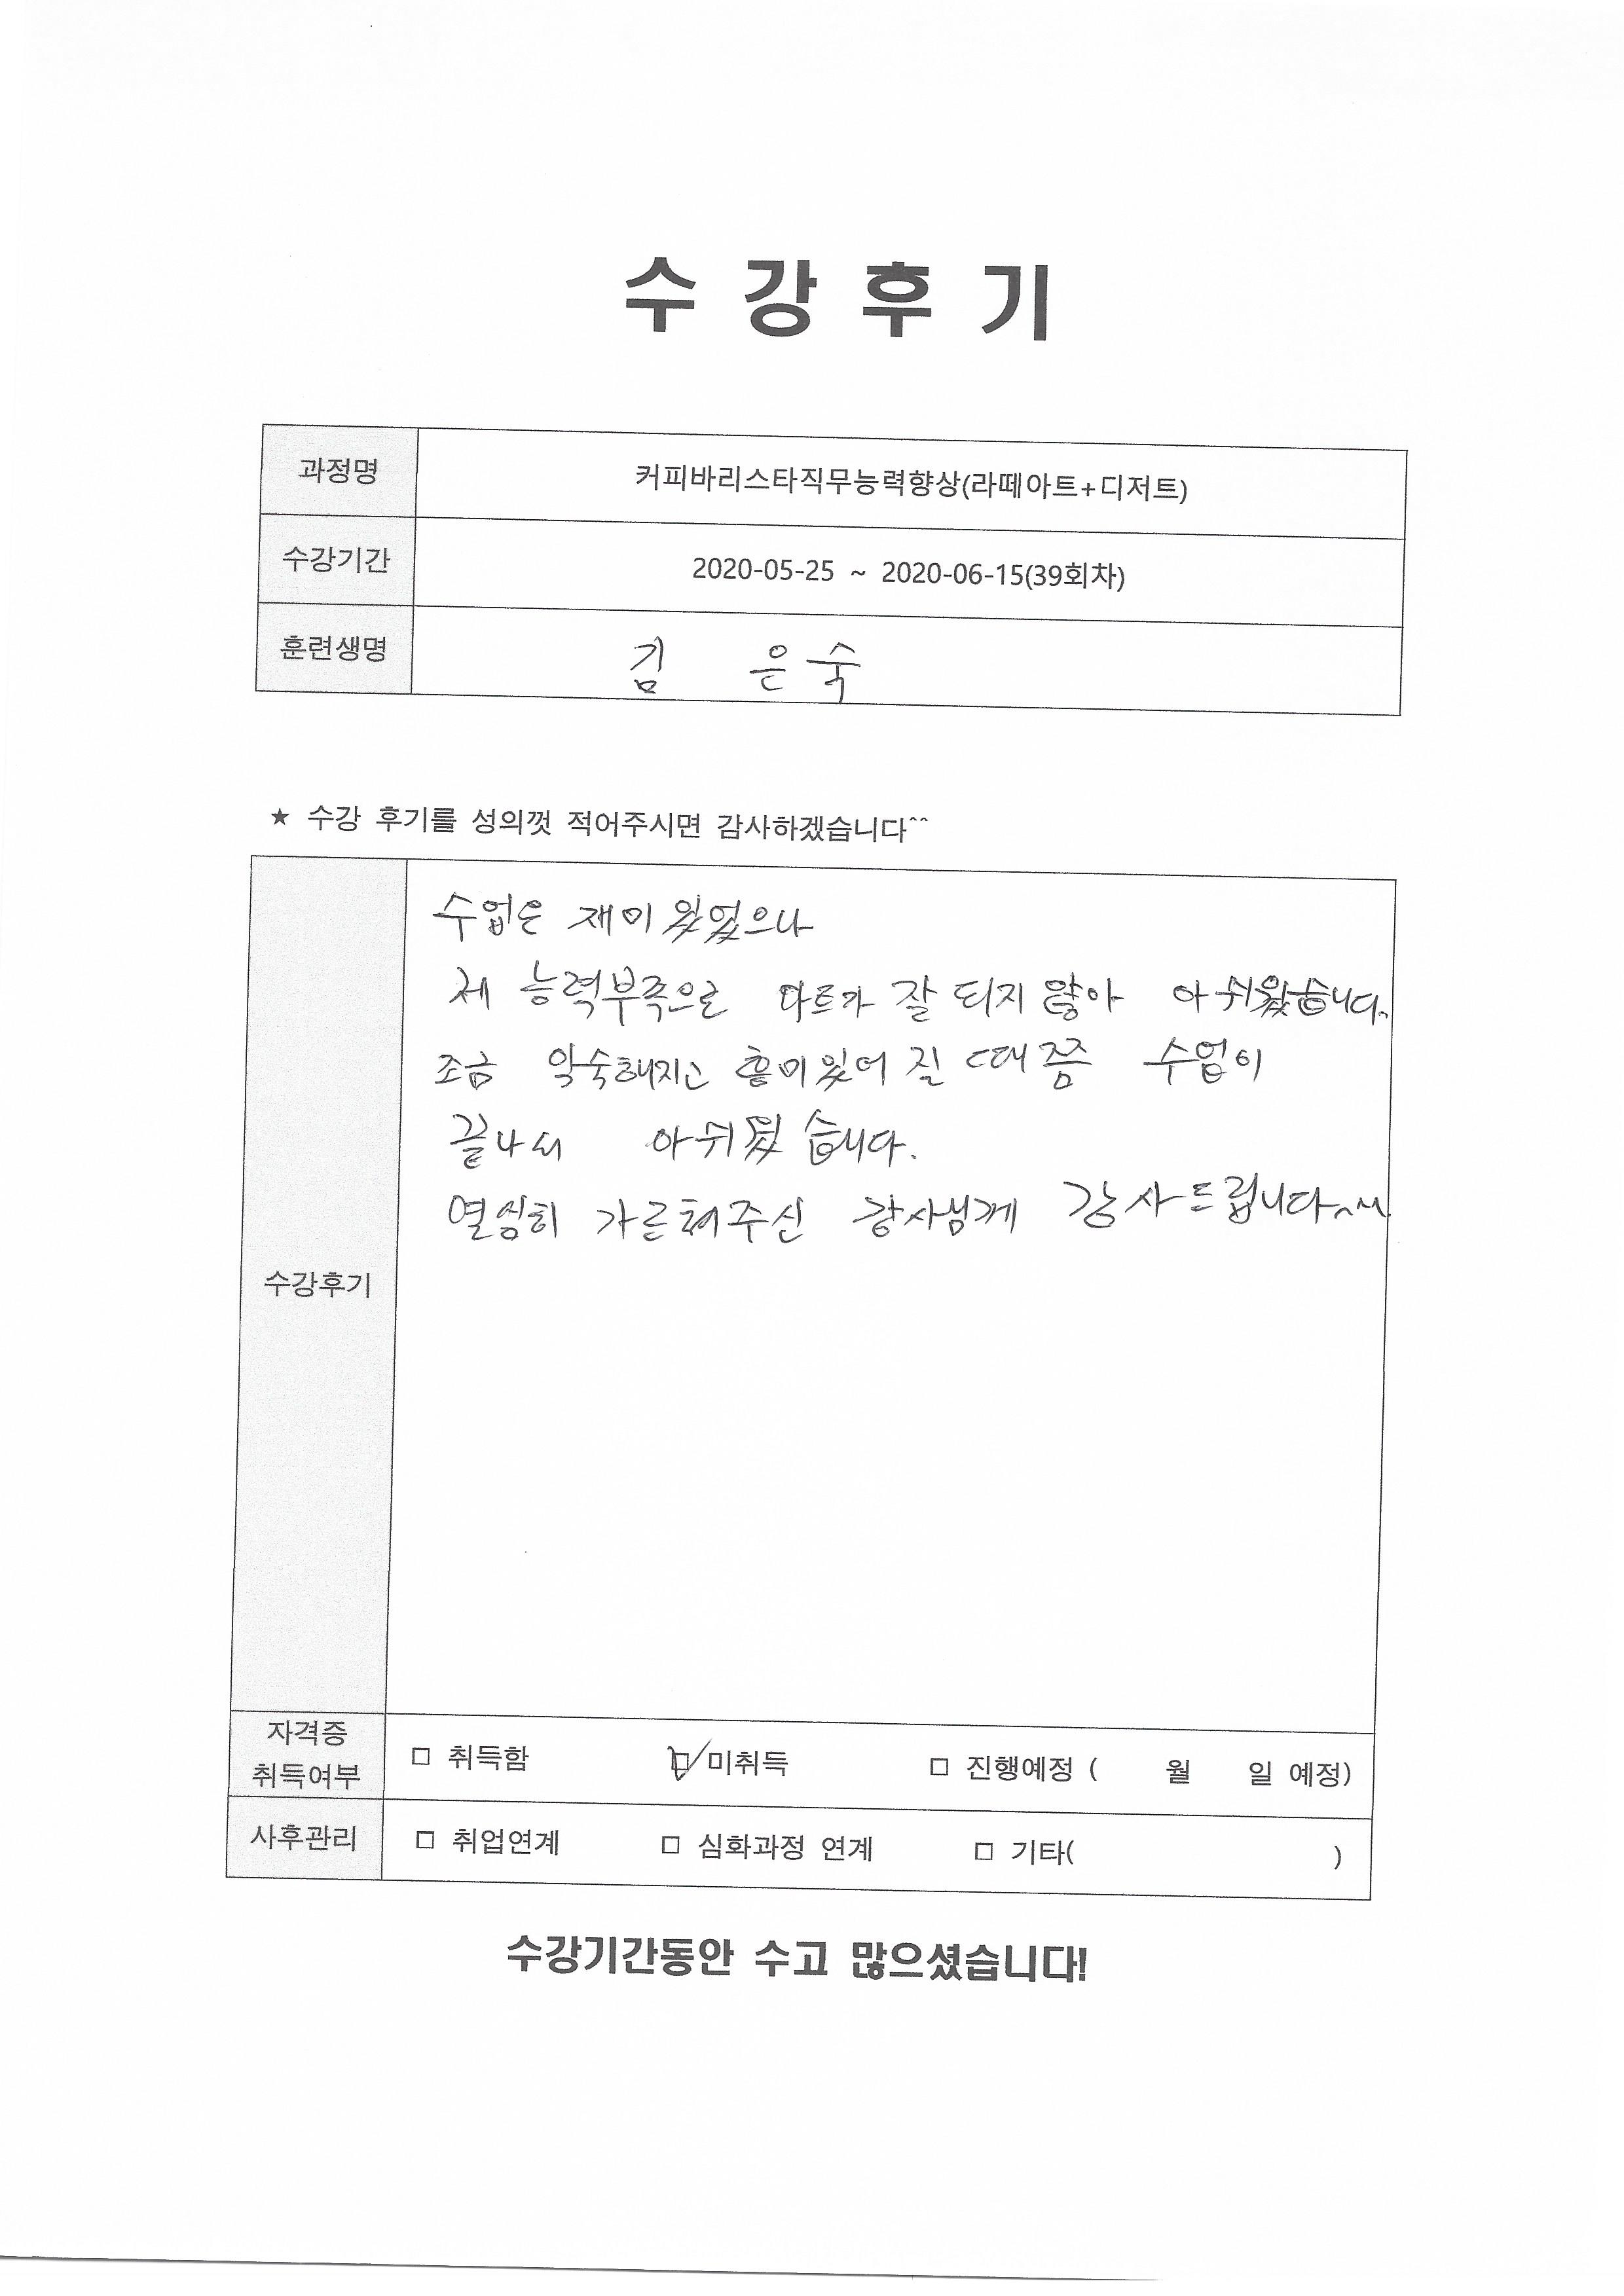 수 강 후 기
과정명 커피바리스타직무능력향상(라떼아트+디저트)
수강기간 2020-05-25 ~ 2020-06-15(39회차)
훈련생명 김 은숙
★ 수강 후기를 성의껏 적어주시면 감사하겠습니다^^
수업은 재미있었으나
제 능력부족으로 아트가 잘 되지 않아 아쉬웠습니다.
조금 익숙해지고 흥미있어 질 때쯤 수업이
끝나서 아쉬웠습니다.
열심히 가르쳐주신 강사님께 감사드립니다^^
수강후기
자격증
취득여부
□ 취득함 ☑ 미취득 □ 진행예정 ( 월 일 예정)
사후관리 □ 취업연계 □ 심화과정 연계 □ 기타( )
수강기간동안 수고 많으셨습니다!